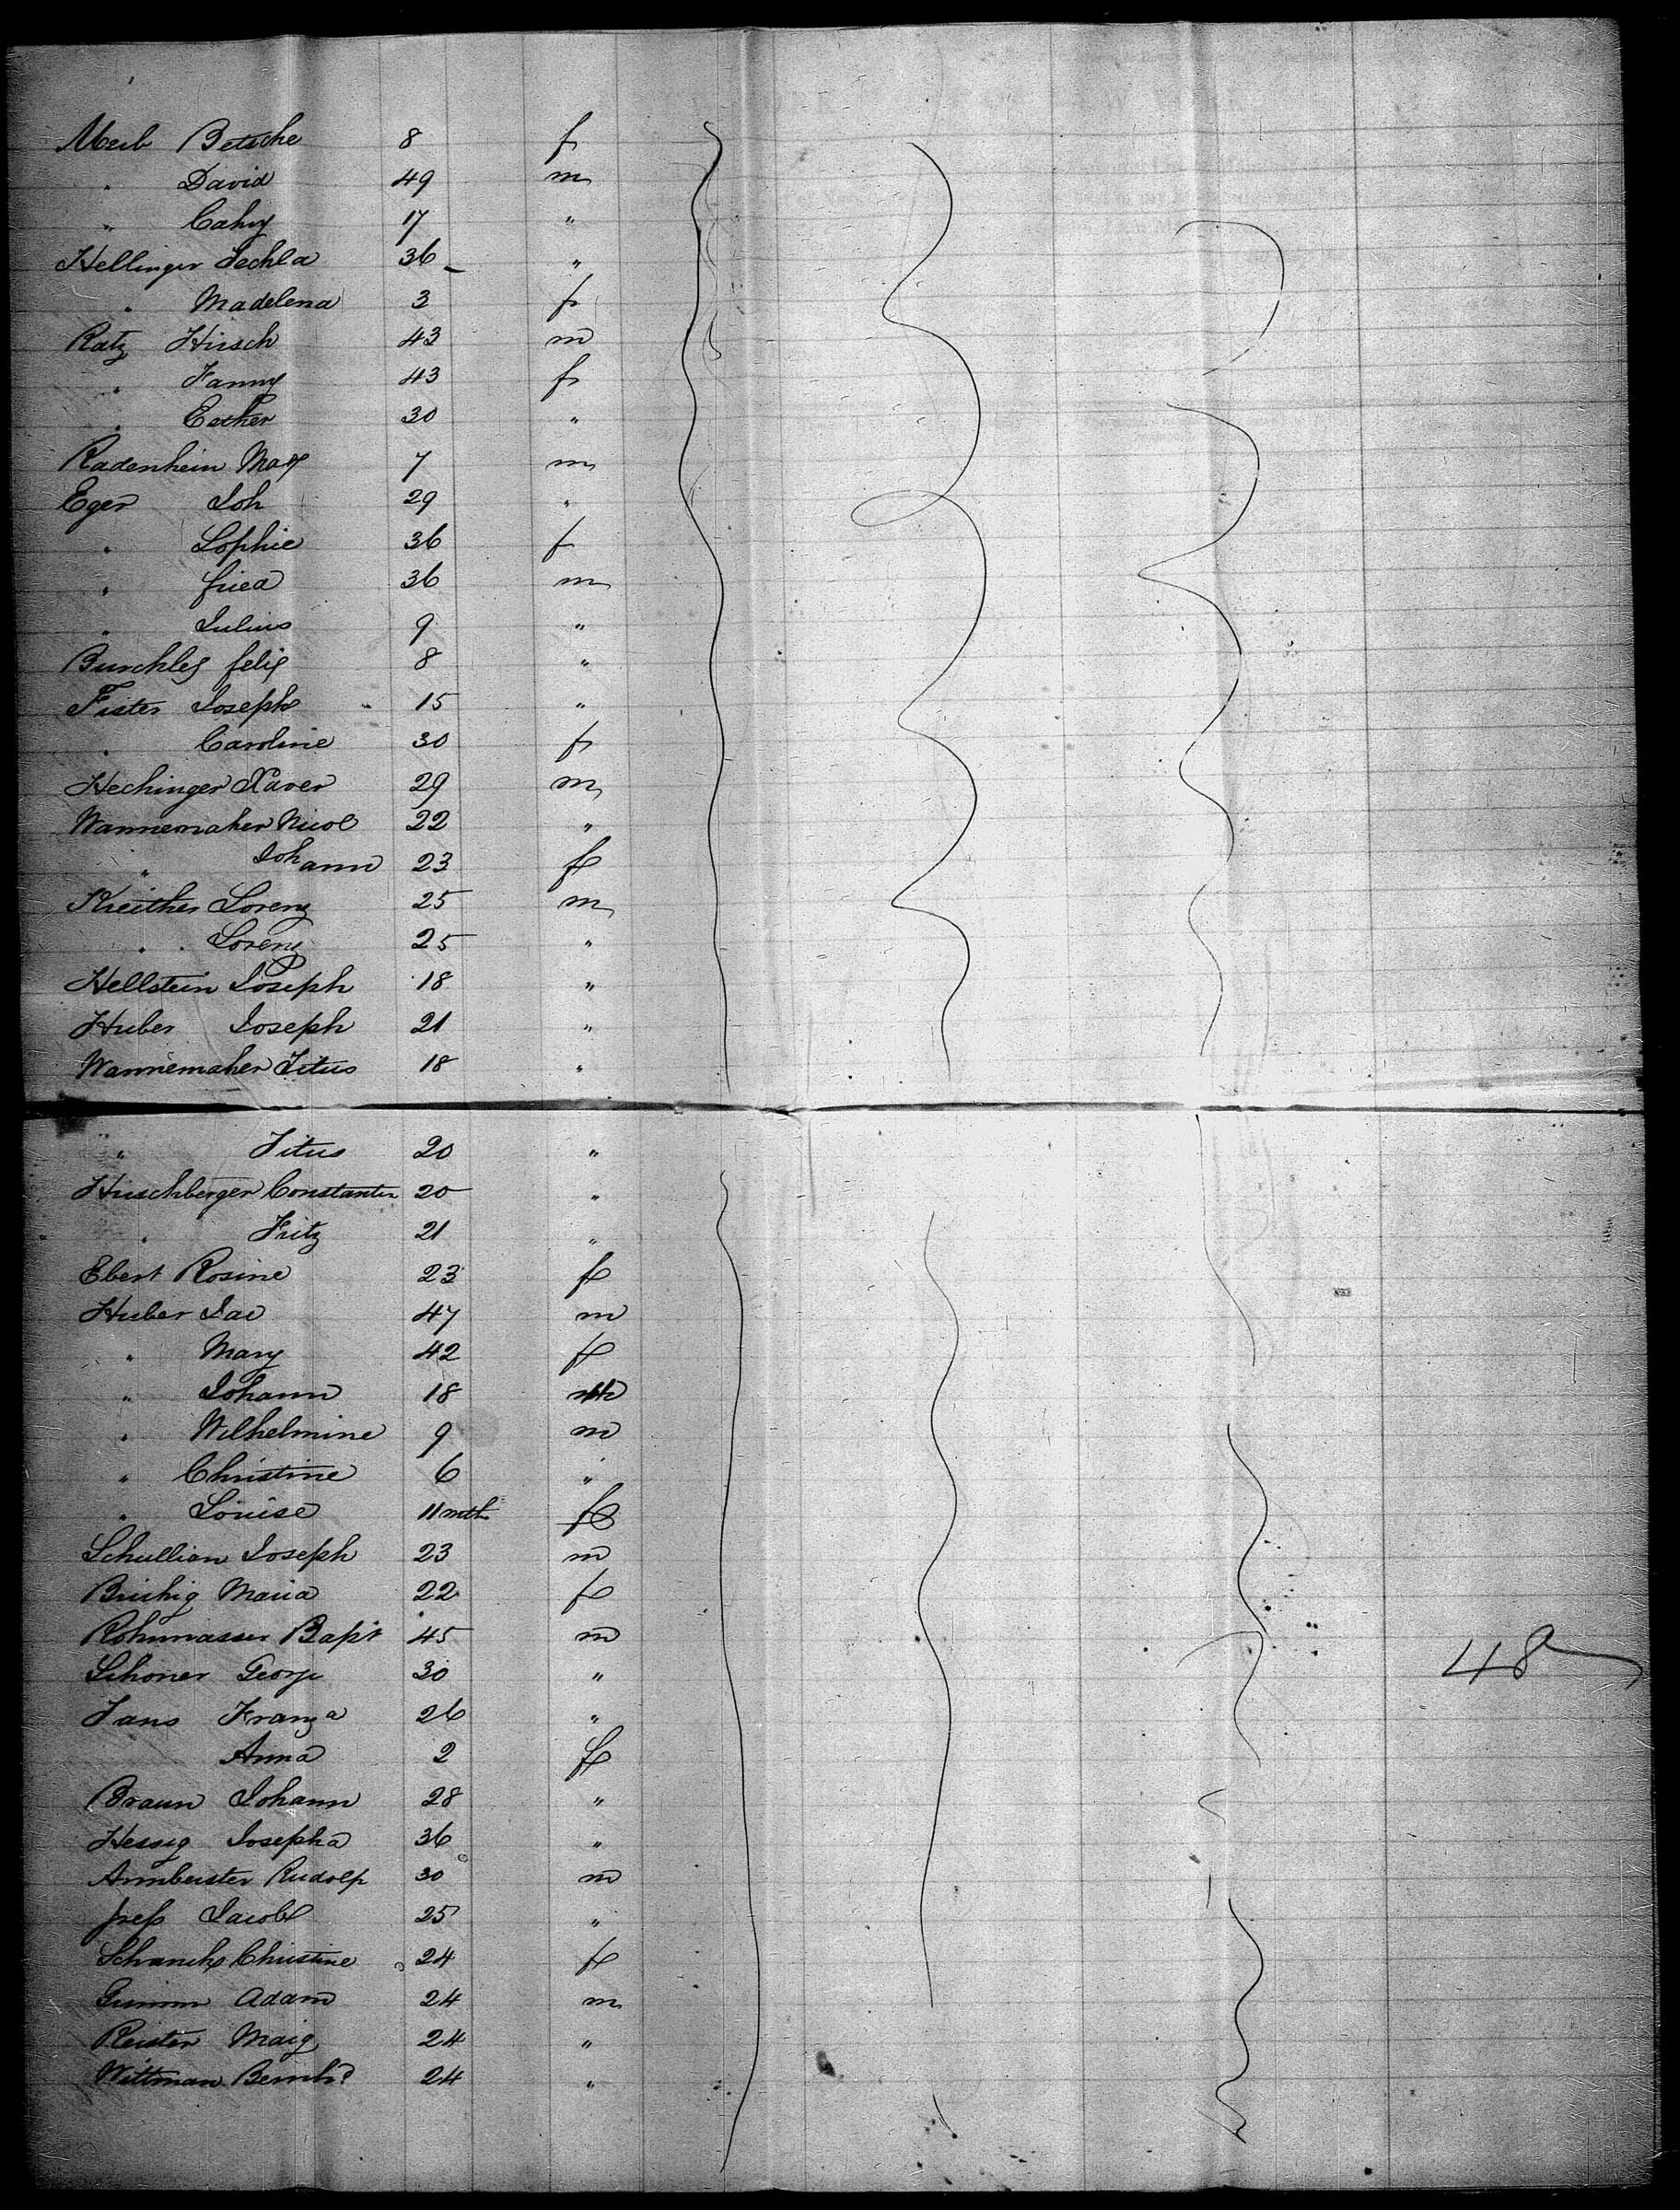 Meib Betsche 8 f
" David 49 m
" Cahy 17 "
Hellinger Techla 36 "
" Madelena 3 f
Katz Hirsch 43 m
" Fanny 43 f
" Esther 30 "
Radenheim Max 7 m
Eger Joh 29 "
" Sophie 36 f
" fried 36 m
" Julius 9 "
felix 8 "
Fister Joseph 15 "
" Caroline 30 f
Hechinger Xaver 29 m
Wannemaher Nicol 22 "
" Johann 23 f
Kreither Lorenz 25 m
" Lorenz 25 "
Hellstein Joseph 18 "
Huber Joseph 21 "
Wannemaher Titus 18 "
" Titus 20 "
Hirschberger Constantin 20 "
" Fritz 21 "
Ebert Rosine 23 f
Huber Jac 47 m
" Mary 42 f
" Johann 18 m
" Wilhelmine 9 m
" Christine 6 "
" Louise 11 mth f
Schullian Joseph 23 m
Maria 22 f
Bapt 45 m
Schoner George 30 "
Jans Franz a 26 "
Anna 2 f
Braun Johann 28 "
Hessig Josepha 36 "
Armbeister Rudolf 30 m
Jacob 25 "
Schanck Christine 24 f
Adam 24 m
Reister 24 "
Wittman Bernhd 24 "
48